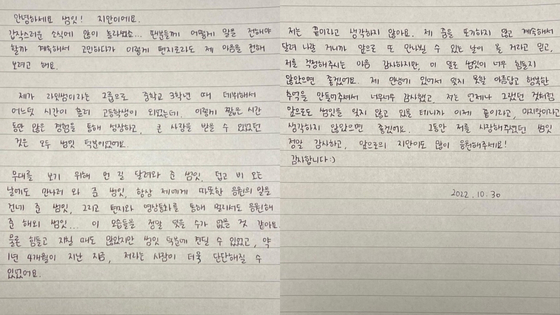 안녕하세요 범잇! 지민이에요.
갑작스러운 소식에 많이 놀라셨죠... 범잇들께 어떻게 말을 전해야
할까 계속해서 고민하다가 이렇게 편지로라도 제 마음을 전해
보려고 해요.
제가 라잇썸이라는 그룹으로 중학교 3학년 때 데뷔해서
어느덧 시간이 흘러 고등학생이 되었는데 이렇게 짧은 시간
동안 많은 경험을 통해 성장하고, 큰 사랑을 받을 수 있었던
것은 모두 범잇 덕분이었어요.
무대를 보기 위해 먼 길 달려와 준 범잇, 덥고 비 오는
날에도 만나러 와 준 범잇, 항상 저에게 따뜻한 응원의 말을
건네 준 범잇, 그리고 편지와 영상통화를 통해 멀리서도 응원해
준 해외 범잇... 이 모습들을 정말 잊을 수가 없을 것 같아요.
물론 힘들고 지칠 때도 많았지만 범잇 덕분에 견딜 수 있었고, 약
1년 4개월이 지난 지금, 저라는 사람이 더욱 단단해질 수
있었어요.
저는 끝이라고 생각하지 않아요. 제 꿈을 포기하지 않고 계속해서
달려 나갈 거니까 앞으로 또 만나뵐 수 있는 날이 올 거라고 믿고,
저를 걱정해주시는 마음 감사하지만, 이 일로 범잇이 너무 힘들지
않았으면 좋겠어요. 제 안녕이 있어서 잊지 못할 아름답고 행복한
추억을 만들어주셔서 너무너무 감사했고, 저는 언제나 그랬던 것처럼
앞으로도 범잇을 잊지 않고 있을 테니까 이게 끝이라고, 마지막이라고
생각하지 않았으면 좋겠어요. 그동안 저를 사랑해주셨던 범잇
정말 감사하고, 앞으로의 지민이도 많이 응원해주세요!
감사합니다 :)
2022. 10. 30